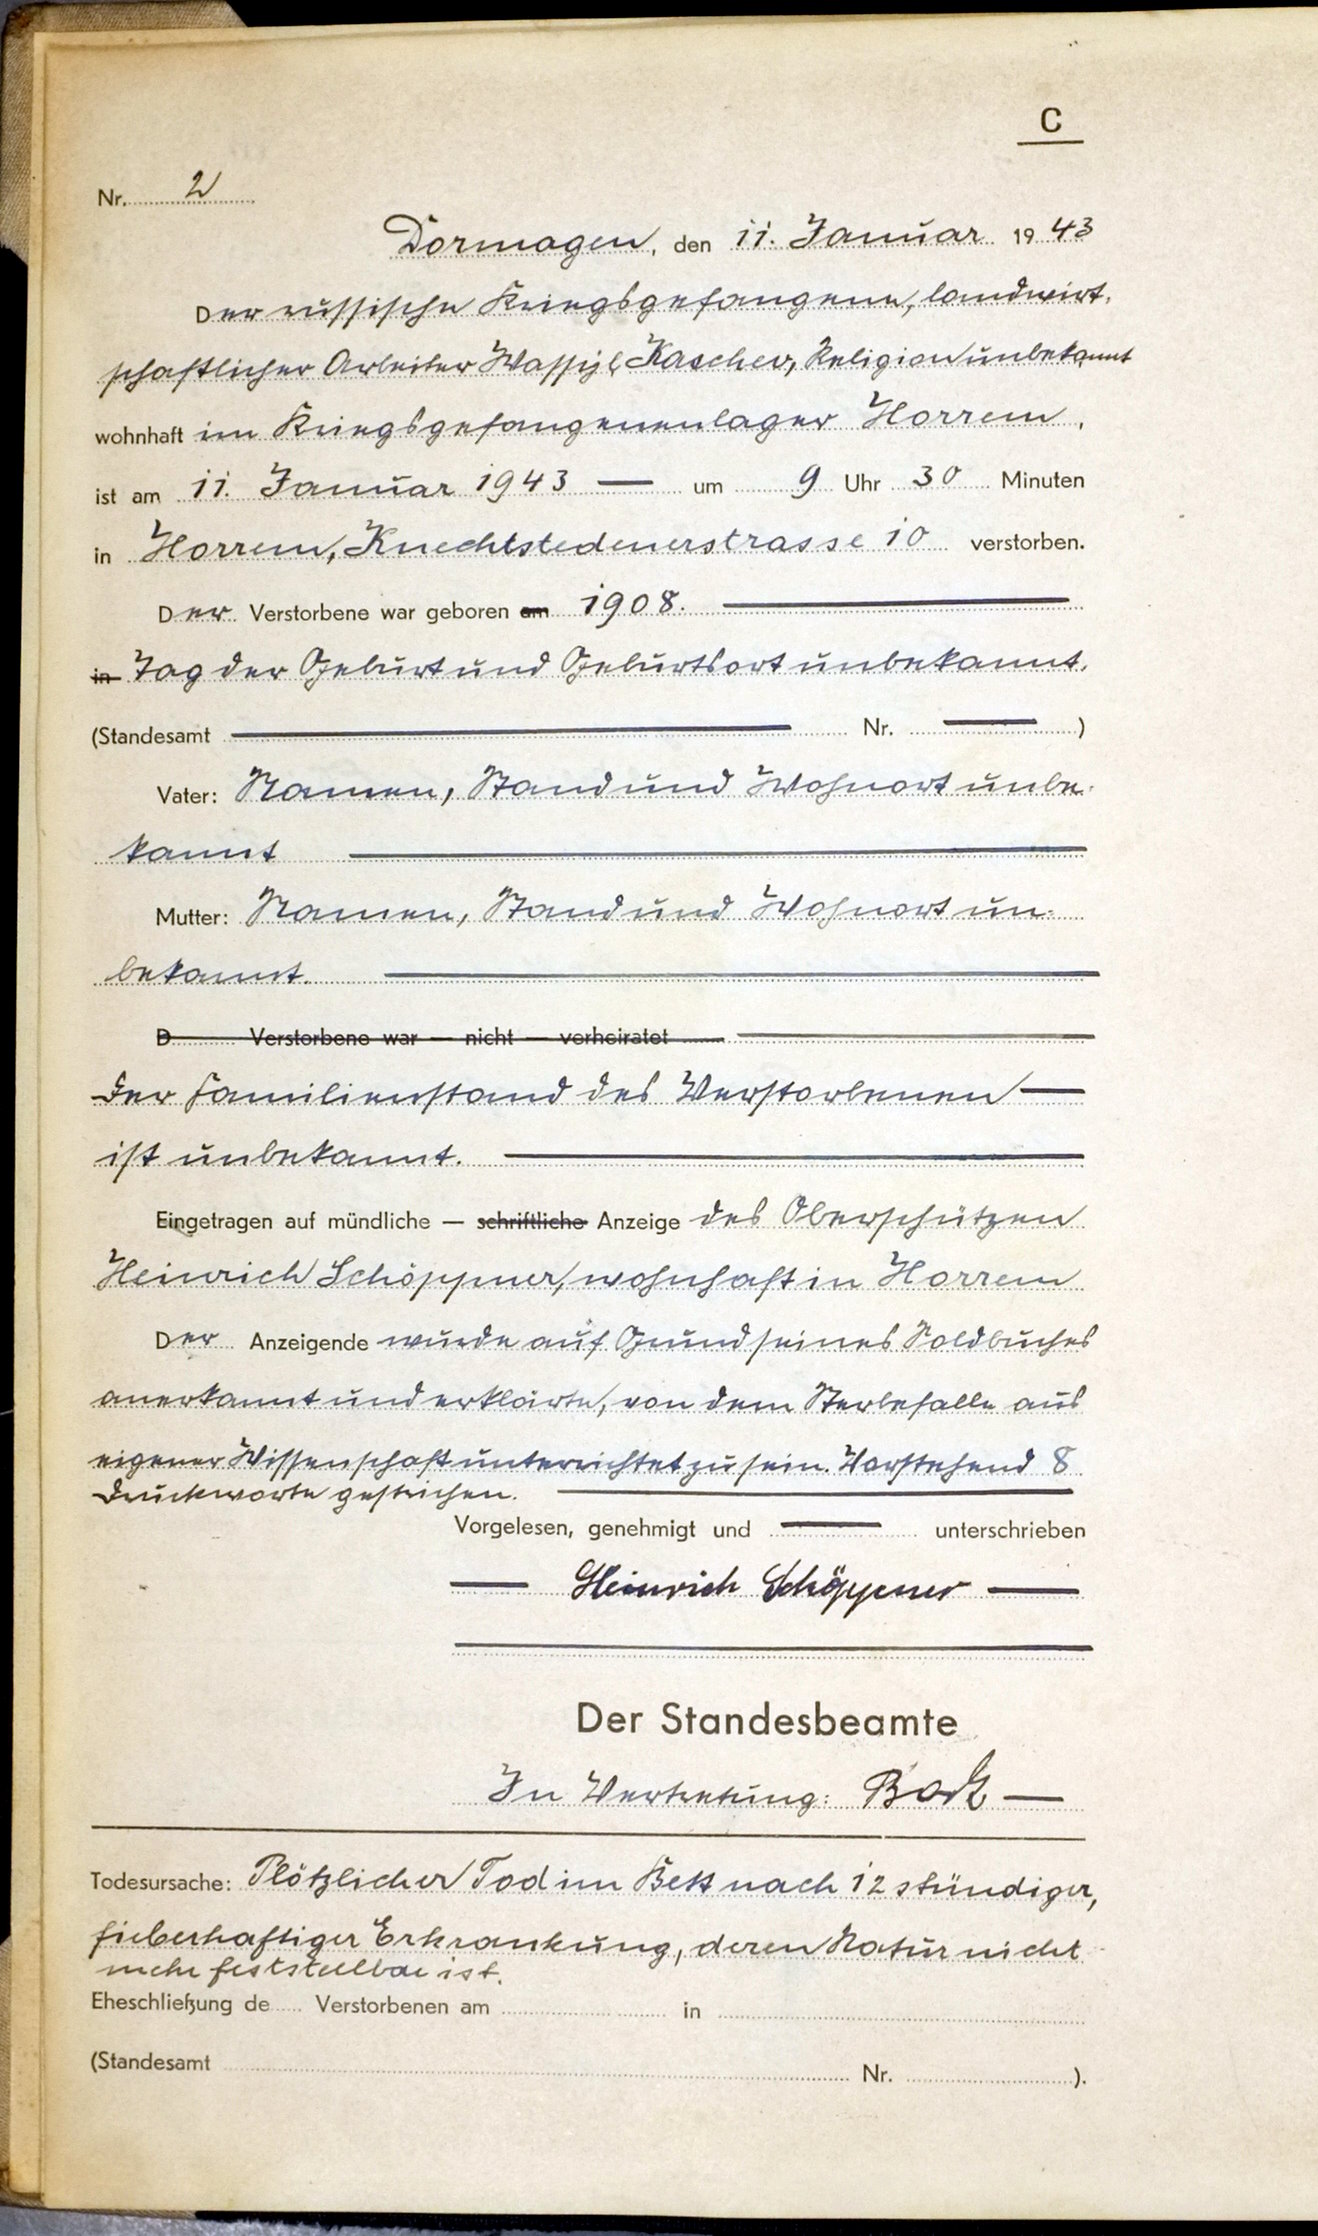 C
Nr. 2
Dormagen, den 11. Januar 1943
Der russische Kriegsgefangene, landwirt-
schaftlicher Arbeiter Wassyl Kascher, Religion unbekannt
wohnhaft im Kriegsgefangenenlager Horrem,
ist am 11. Januar 1943 — um 9 Uhr 30 Minuten
in Horrem, Knechtstedenerstrasse 10 verstorben.
Der Verstorbene war geboren am 1908.
in Tag der Geburt und Geburtsort unbekannt.
(Standesamt Nr. )
Vater: Namen, Stand und Wohnort unbe-
kannt
Mutter: Namen, Stand und Wohnort un-
bekannt.
D Verstorbene war — nicht — verheiratet
Der Familienstand des Verstorbenen
ist unbekannt.
Eingetragen auf mündliche — schriftliche Anzeige des Oberschützen
Heinrich Schöppner, wohnhaft in Horrem
Der Anzeigende wurde auf Grund seines Soldbuches
anerkannt und erklärte, von dem Sterbefalle aus
eigener Wissenschaft unterrichtet zu sein. Vorstehend 8
Druckworte gestrichen.
Vorgelesen, genehmigt und — unterschrieben
Heinrich Schöppner
Der Standesbeamte
In Vertretung:
Todesursache: Plötzlicher Tod im Bett nach 12 stündiger,
fieberhaftiger Erkrankung, deren Natur nicht
mehr feststellbar ist.
Eheschließung de Verstorbenen am in
(Standesamt Nr. ).